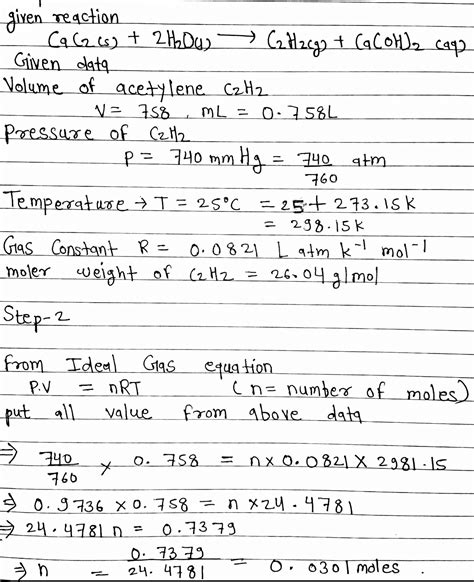 given reaction
CaC2(s) + 2H2O(l) ⟶ C2H2(g) + Ca(OH)2 (aq)
Given data
Volume of acetylene C2H2
V = 758, mL = 0.758L
Pressure of C2H2
P = 740 mm Hg = 740/760 atm
Temperature → T = 25°C = 25 + 273.15 K
= 298.15 K
Gas Constant R = 0.0821 L atm k⁻¹ mol⁻¹
moler weight of C2H2 = 26.04 g/mol
Step-2
from Ideal Gas equation
P.V = nRT (n = number of moles)
put all value from above data
⇒ 740/760 × 0.758 = n × 0.0821 × 2981.15
⇒ 0.9736 × 0.758 = n × 24.4781
⇒ 24.4781 n = 0.7379
⇒ n = 0.7379/24.4781 = 0.0301 moles.